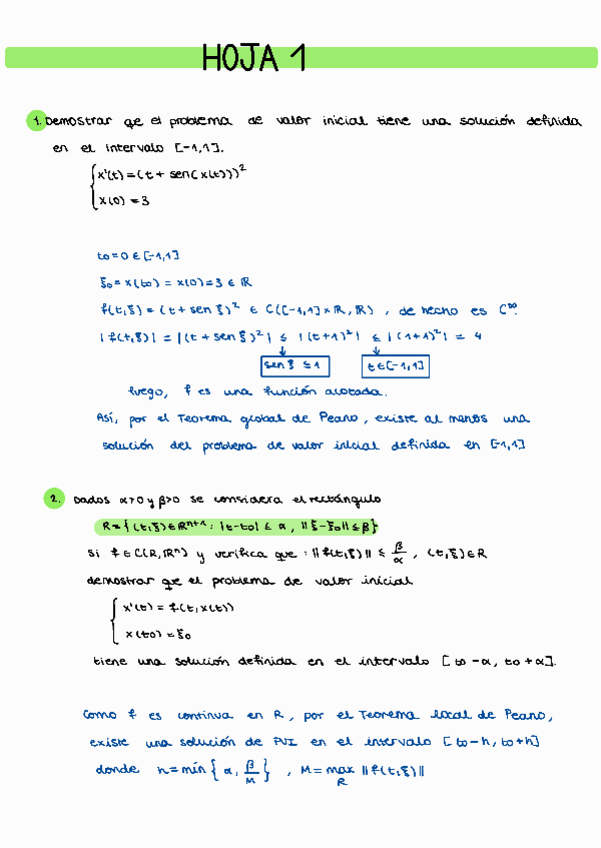 HOJA 1
1. Demostrar que el problema de valor inicial tiene una solución definida
en el intervalo [-1,1].
x'(t) = (t + sen(x(t)))²
x(0) = 3
t₀ = 0 ∈ [-1,1]
ξ₀ = x(t₀) = x(0) = 3 ∈ ℝ
f(t,ξ) = (t + sen ξ)² ∈ C([-1,1] × ℝ, ℝ) , de hecho es C^∞.
|f(t,ξ)| = |(t + sen ξ)²| ≤ |(t+1)²| ≤ |(1+1)²| = 4
sen ξ ≤ 1 t ∈ [-1,1]
luego, f es una función acotada.
Así, por el Teorema global de Peano, existe al menos una
solución del problema de valor inicial definida en [-1,1]
2. Dados α>0 y β>0 se considera el rectángulo
R = {(t,ξ) ∈ ℝⁿ⁺¹ : |t-t₀| ≤ α, ||ξ-ξ₀|| ≤ β}
si f ∈ C(R, ℝⁿ) y verifica que : ||f(t,ξ)|| ≤ β/α , (t,ξ) ∈ R
demostrar que el problema de valor inicial
x'(t) = f(t, x(t))
x(t₀) = ξ₀
tiene una solución definida en el intervalo [t₀-α, t₀+α].
Como f es continua en R, por el Teorema local de Peano,
existe una solución de PVI en el intervalo [t₀-h, t₀+h]
donde h = mín {α, β/M} , M = max ||f(t,ξ)||
R